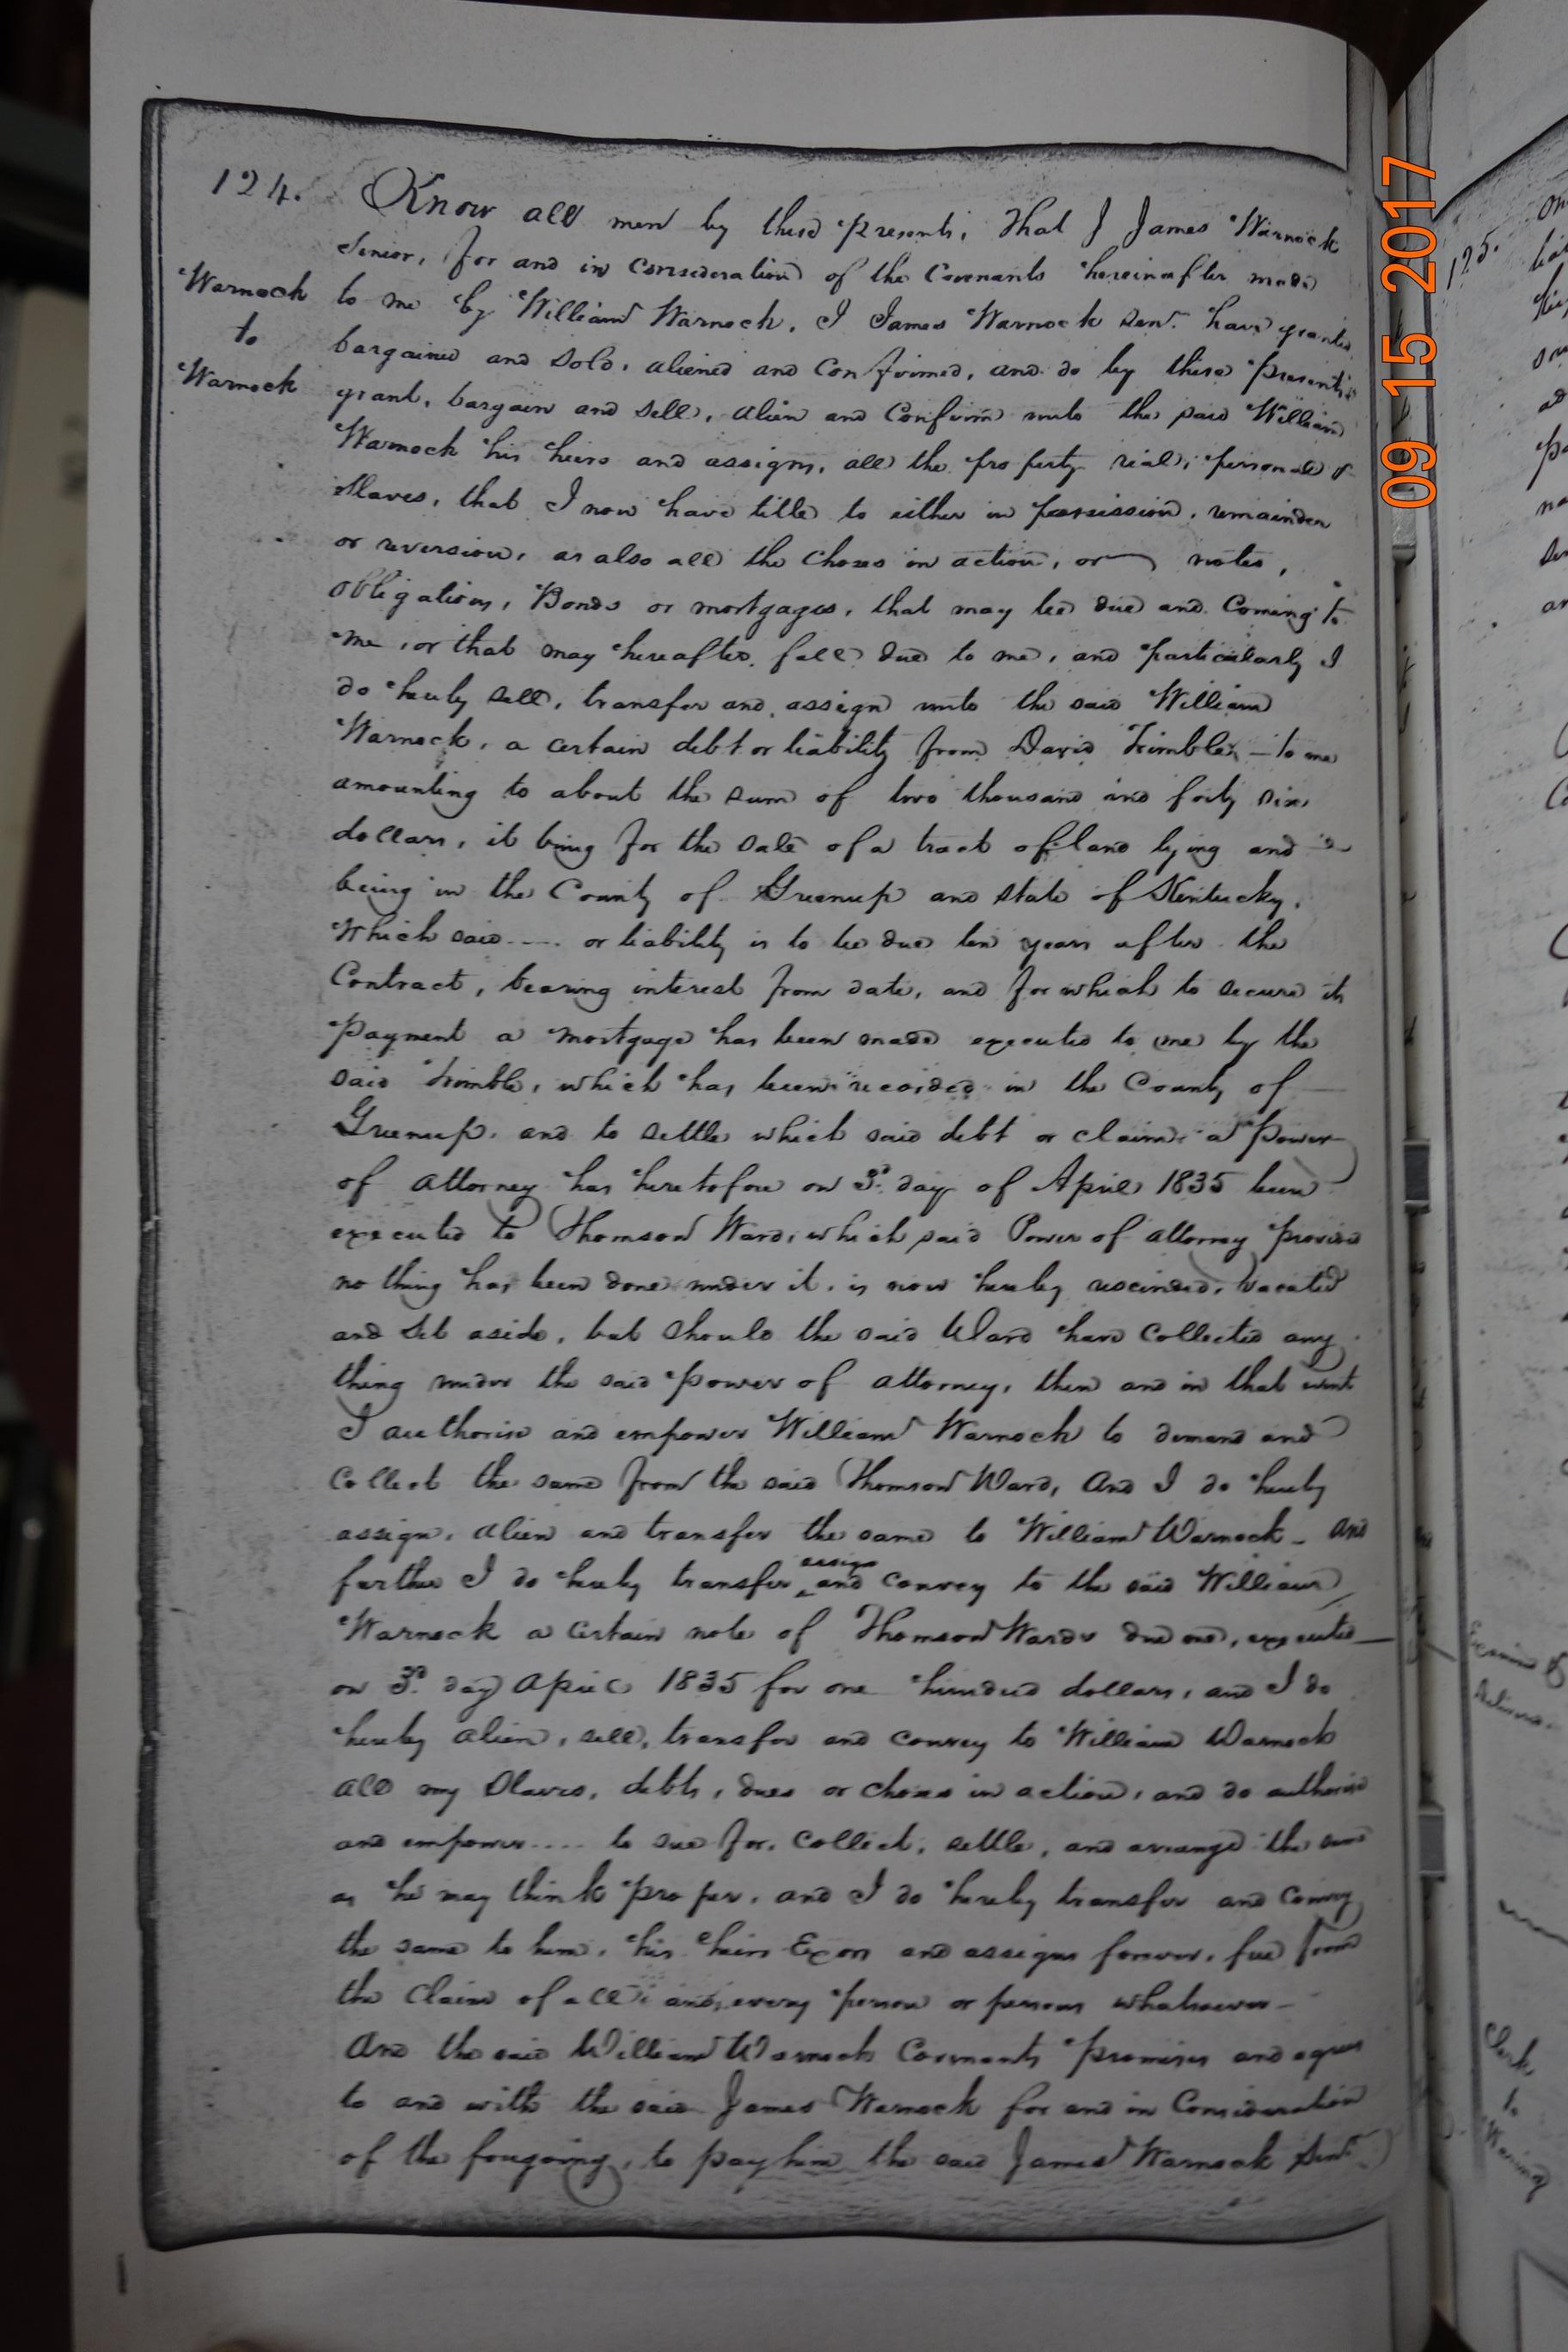 124.
Know all men by these Presents, That I James Warnock
Senior, for and in Consideration of the Covenants hereinafter made
Warnock
to
Warnock
to me by William Warnock, I James Warnock Senr. have granted
bargained and Sold, aliened and Confirmed, and do by these Presents
grant, bargain and Sell, alien and Confirm unto the said William
Warnock his heirs and assigns, all the property real, personal &
Slaves, that I now have title to either in possession, remainder
or reversion, as also all the Choses in action, or notes,
Obligations, Bonds or mortgages, that may be due and Coming to
me, or that may hereafter fall due to me, and particularly I
do hereby Sell, transfer and assign unto the said William
Warnock, a certain debt or liability from David Trimble, - to me
amounting to about the sum of two thousand and forty six
dollars, it being for the Sale of a tract of land lying and
being in the County of Greenup and State of Kentucky,
Which said .... or liability is to be due ten years after the
Contract, bearing interest from date, and for which to secure its
Payment a mortgage has been made executed to me by the
said Trimble, which has been recorded in the County of
Greenup, and to settle which said debt or claim, a Power
of attorney has heretofore on 3d. day of April 1835 been
executed to Thomson Ward, which said Power of attorney provided
nothing has been done under it, is now hereby rescinded, vacated
and Set aside, but Should the said Ward have Collected any
thing under the said Power of attorney, then and in that event
I authorise and empower William Warnock to demand and
Collect the same from the said Thomson Ward, And I do hereby
assign, alien and transfer the same to William Warnock - and
further I do hereby transfer assign and convey to the said William
Warnock a certain note of Thomson Wards due one, executed
on 3d. day April 1835 for one hundred dollars, and I do
hereby alien, sell, transfer and convey to William Warnock
all my Slaves, debts, dues or choses in action, and do authorise
and empower .... to sue for, Collect, settle, and arrange the same
as he may think Proper, and I do hereby transfer and Convey
the same to him, his heirs Exors and assigns forever, free from
the Claim of all and every person or persons whatsoever -
And the said William Warnock Covenants Promises and agrees
to and with the said James Warnock for and in Consideration
of the foregoing, to pay him the said James Warnock Senr.
09 15 2017
125.
Clark
to
Waring